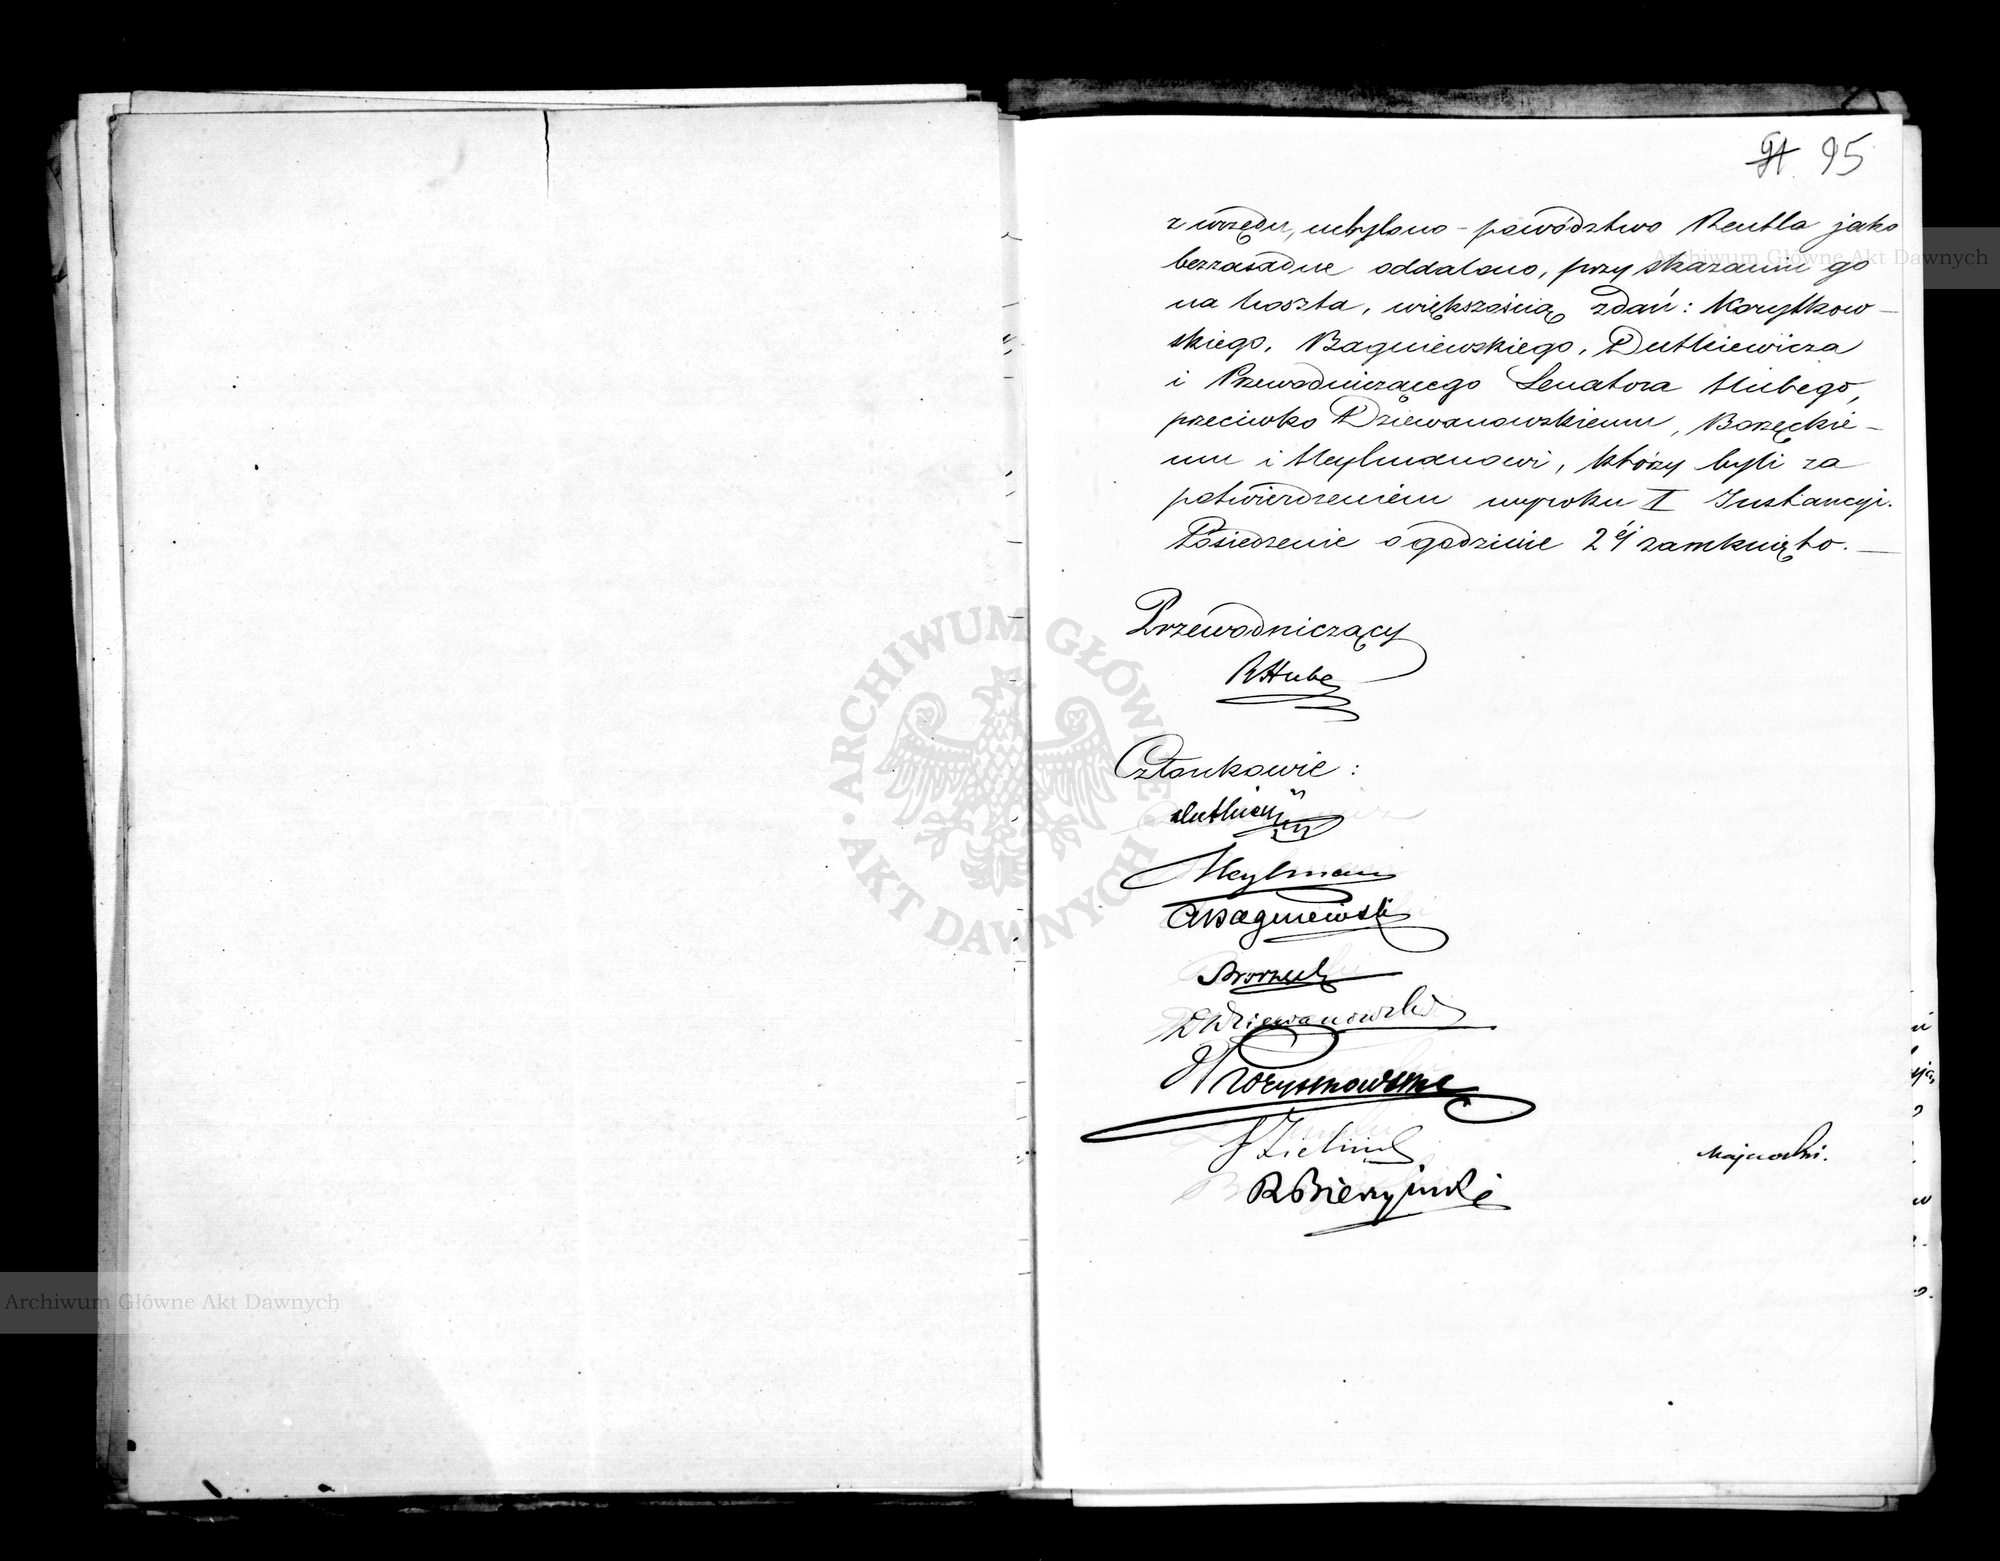 91. 95
z urzędu, uchylono - powództwo Reutla jako
bezzasadne oddalono, przy skazaniu go
na koszta, większością zdań: Korytkow-
skiego, Bagniewskiego, Dutkiewicza
i Przewodniczącego Senatora Hubego,
przeciwko Dziewanowskiemu, Borzęckie-
mu i Heylmanowi, którzy byli za
potwierdzeniem wyroku I Instancyi.
Posiedzenie o godzinie 2éj zamknięto. —
Przewodniczący
RHube
Członkowie:
Dutkiewicz
Heylman
ABagniewski
Borzęcki
D Dziewanowski
Korytkowski
Zieliński
RBierzyński
Majewski.
Archiwum Główne Akt Dawnych
Archiwum Główne Akt Dawnych
ARCHIWUM GŁÓWNE AKT DAWNYCH